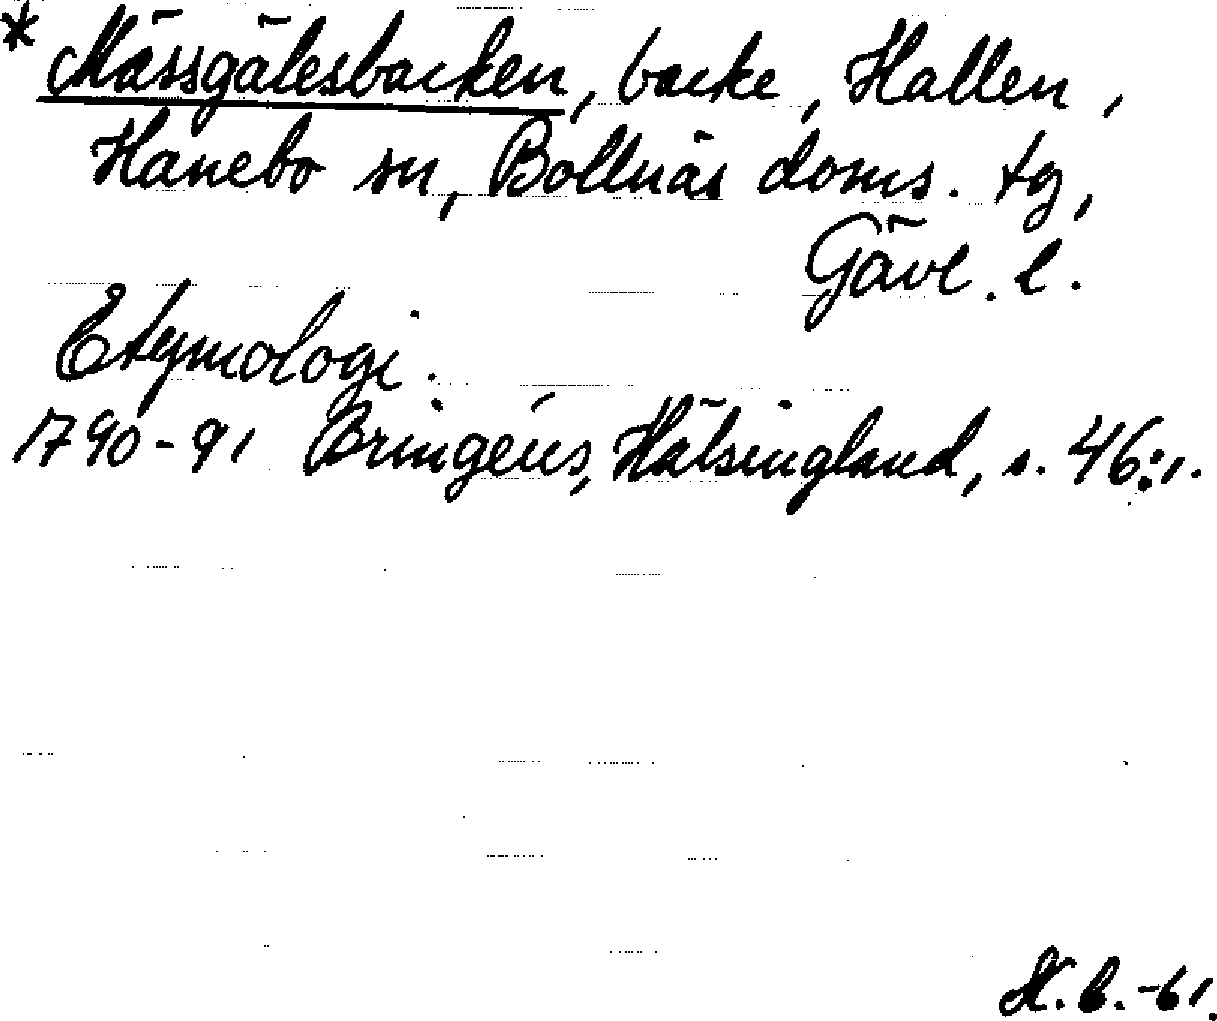 * Mässgälesbacken, backe, Hallen,
Hanebo sn, Bollnäs doms. tg,
Gävl. l.
Etymologi.
1790-91 Bringéus, Hälsingland, s. 46:1.
H.B.-61.